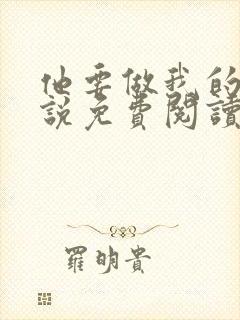 他要做我的
說免費閱讀
羅明貴